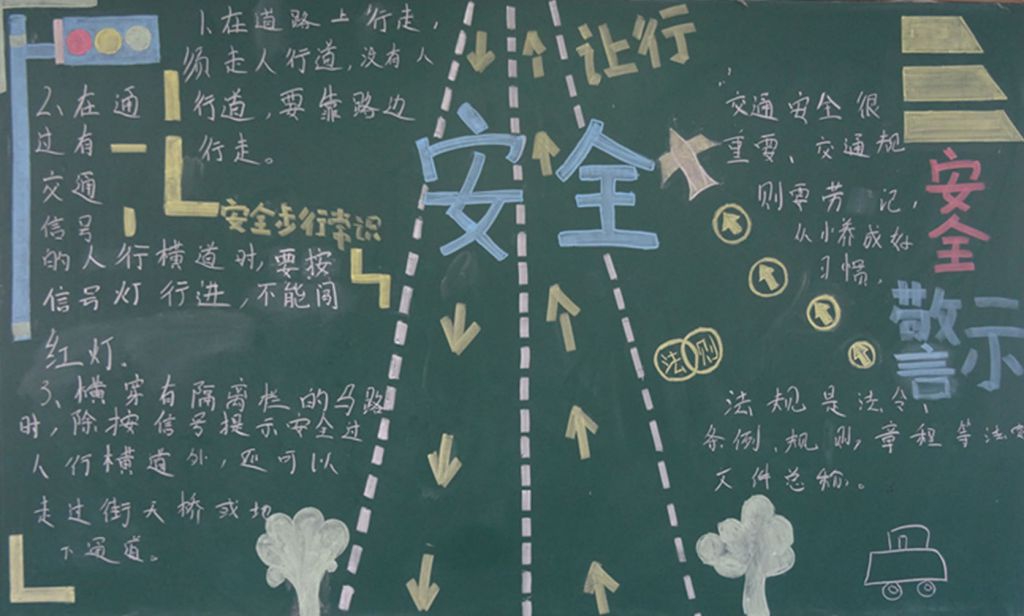 1、在道路上行走,
须走人行道,没有人
行道,要靠路边
行走。
安全步行常识
2、在通
过有
交通
信号
的人行横道时,要按
信号灯行进,不能闯
红灯.
3、横穿有隔离栏的马路
时,除按信号提示安全过
人行横道外,还可以
走过街天桥或地
下通道。
安全
让行
交通安全很
重要、交通规
则要劳记,
从小养成好
习惯,
安全
警示
法则
法规是法令、
条例、规则,章程等法定
文件总称。